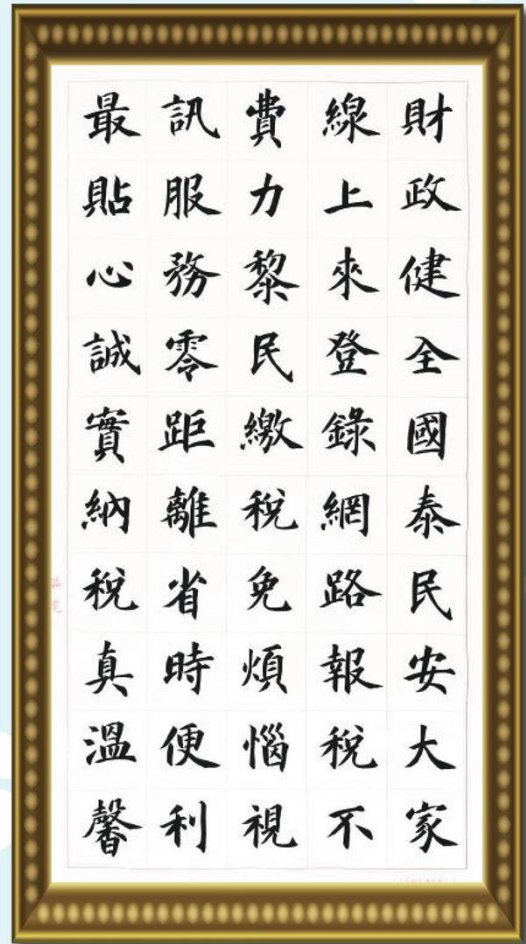 財政健全國泰民安大家
線上來登錄網路報稅不
費力黎民繳稅免煩惱視
訊服務零距離省時便利
最貼心誠實納稅真溫馨